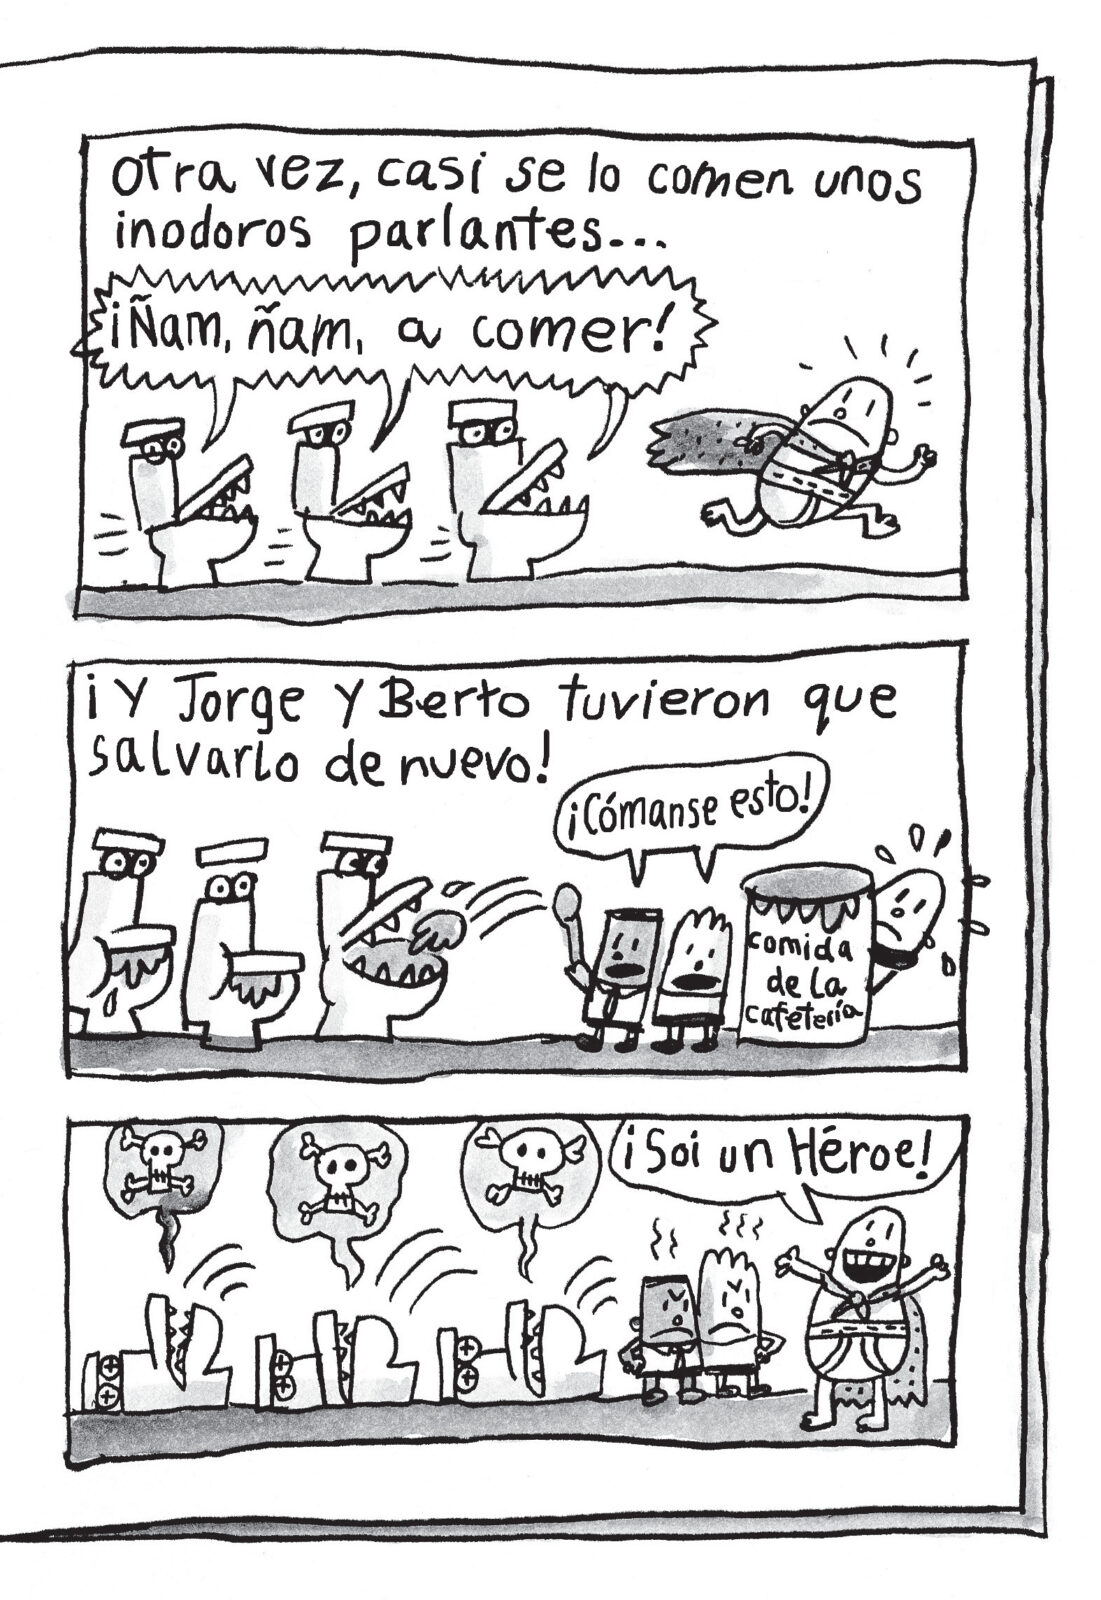 Otra vez, casi se lo comen unos
inodoros parlantes...
¡Ñam, ñam, a comer!
¡Y Jorge y Berto tuvieron que
salvarlo de nuevo!
¡Cómanse esto!
comida
de la
cafetería
¡Soi un Héroe!